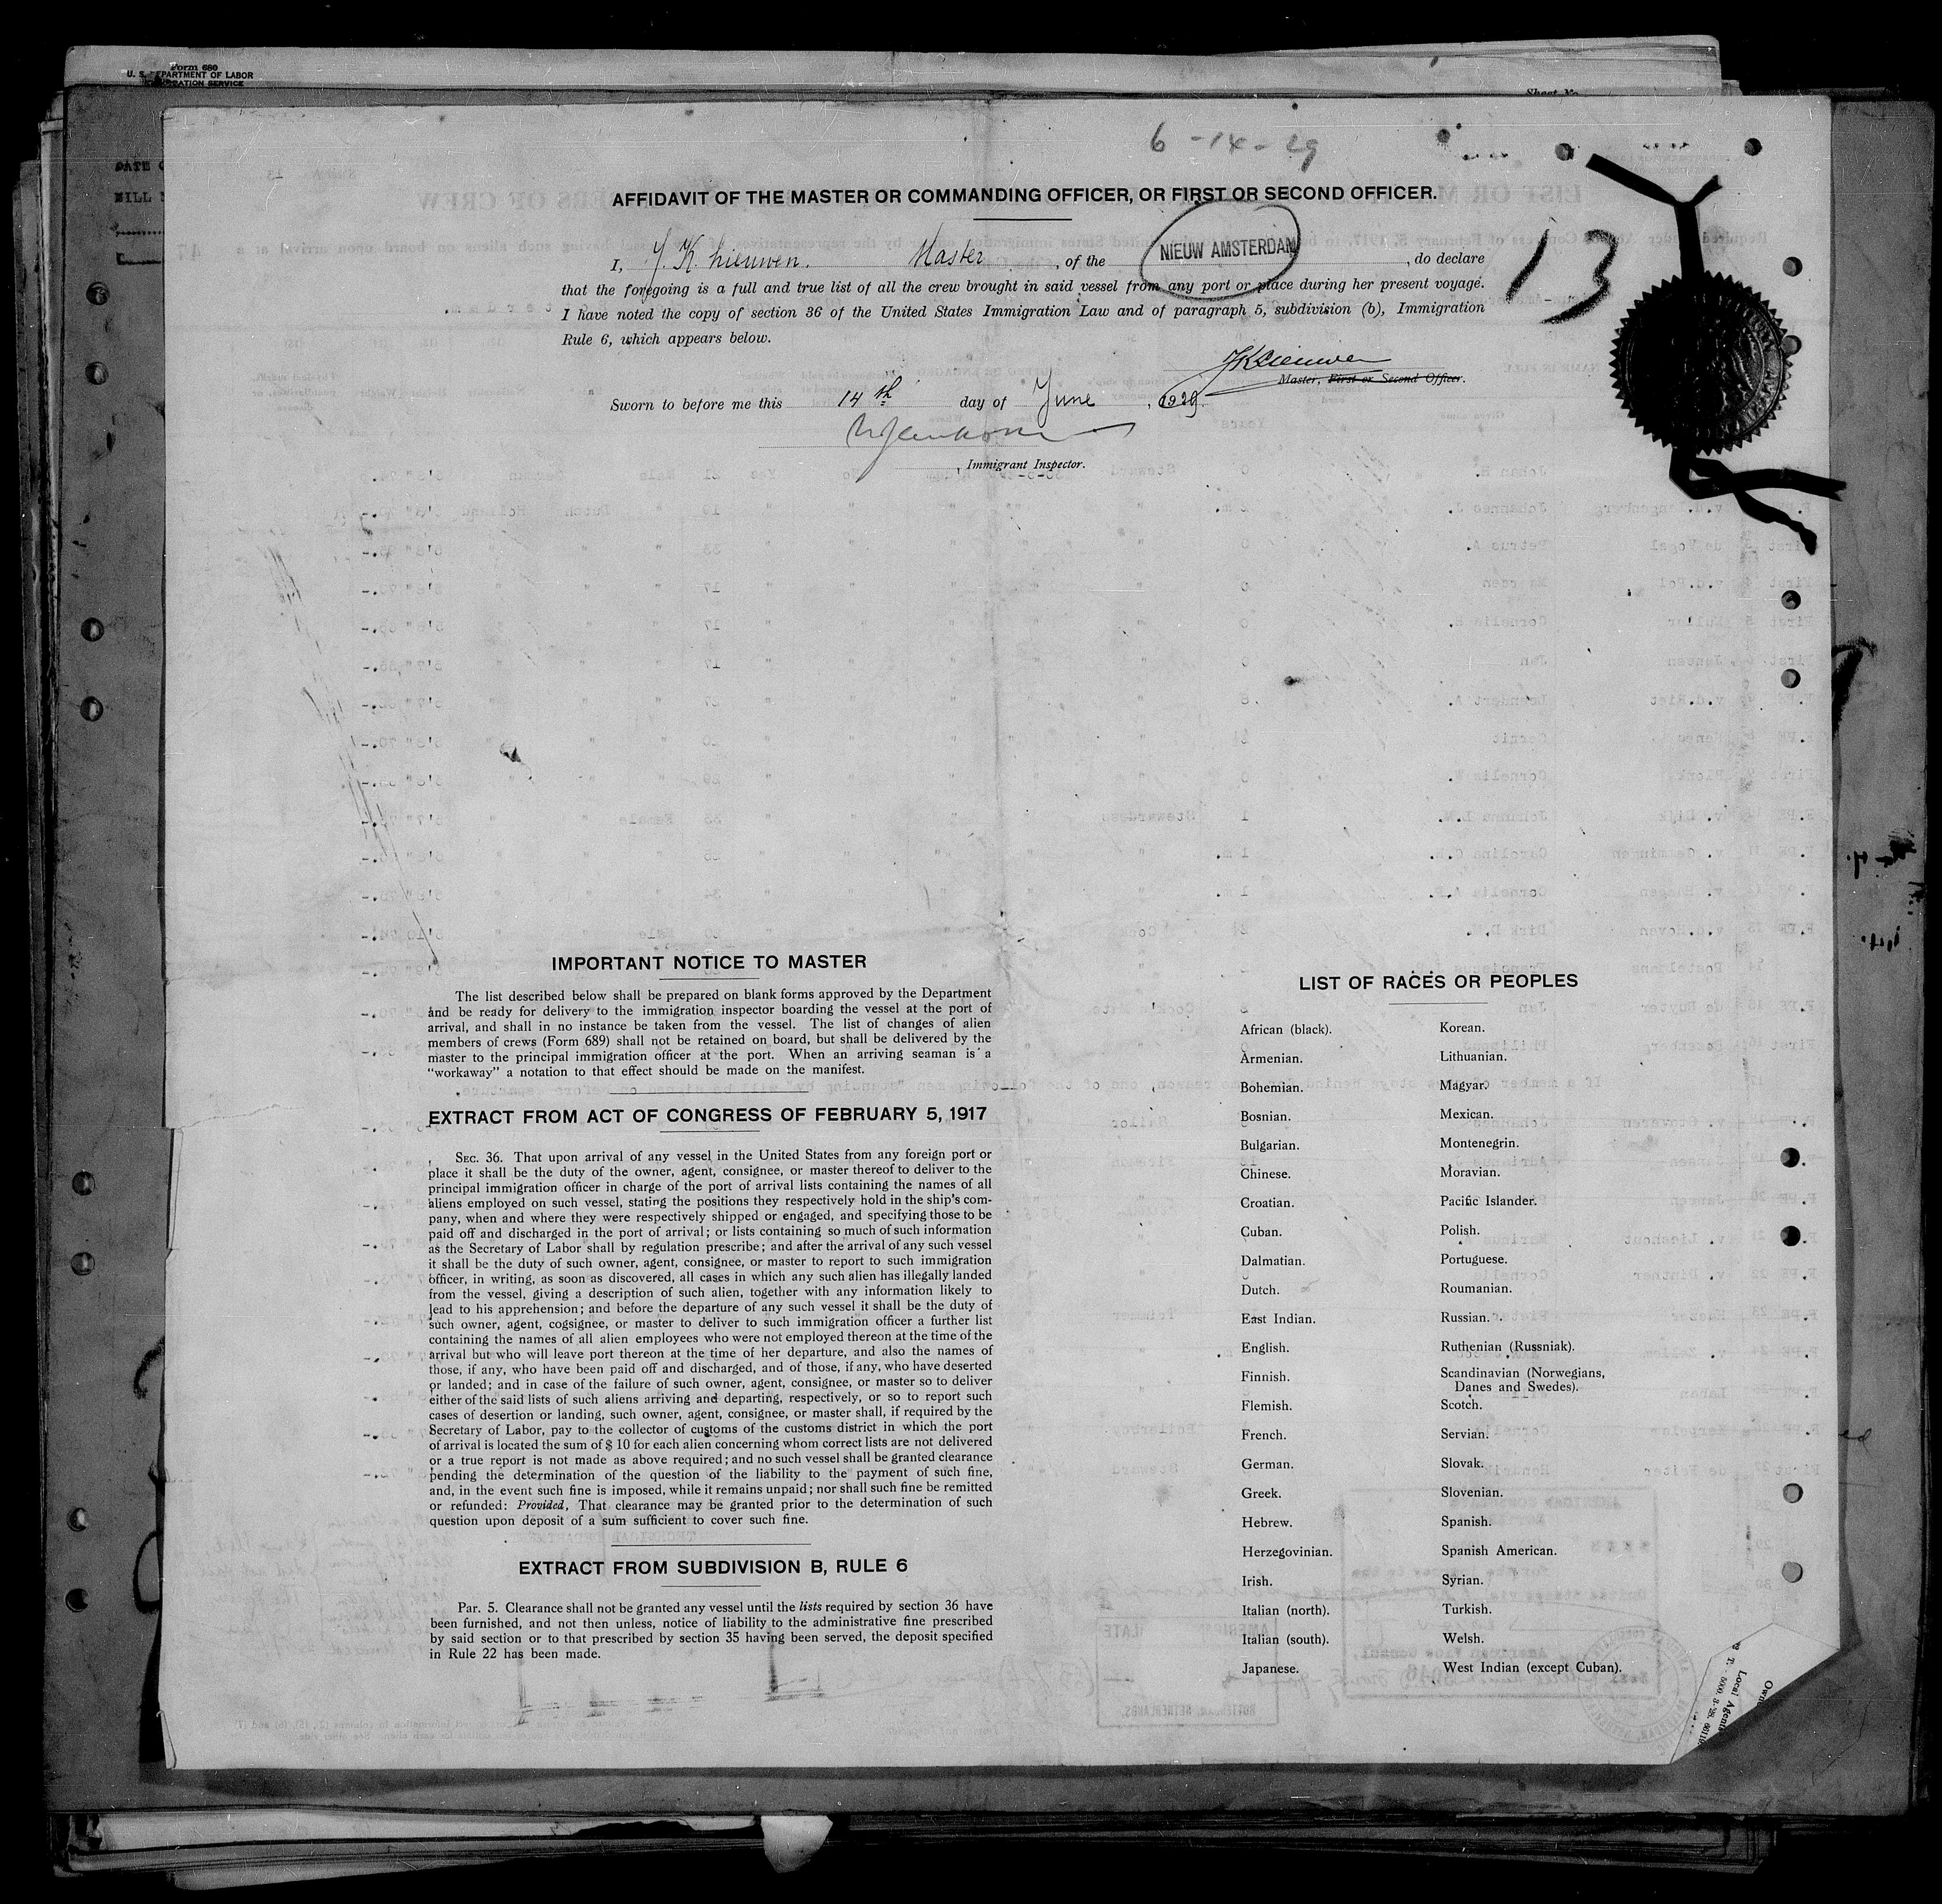 Form 680
U. S. DEPARTMENT OF LABOR
6-14-29
AFFIDAVIT OF THE MASTER OR COMMANDING OFFICER, OR FIRST OR SECOND OFFICER.
13
I, Master, of the NIEUW AMSTERDAM, do declare
that the foregoing is a full and true list of all the crew brought in said vessel from any port or place during her present voyage.
I have noted the copy of section 36 of the United States Immigration Law and of paragraph 5, subdivision (b), Immigration
Rule 6, which appears below.
Master, First or Second Officer.
Sworn to before me this 14th day of June, 1929.
, Immigrant Inspector.
IMPORTANT NOTICE TO MASTER
The list described below shall be prepared on blank forms approved by the Department
and be ready for delivery to the immigration inspector boarding the vessel at the port of
arrival, and shall in no instance be taken from the vessel. The list of changes of alien
members of crews (Form 689) shall not be retained on board, but shall be delivered by the
master to the principal immigration officer at the port. When an arriving seaman is a
"workaway" a notation to that effect should be made on the manifest.
EXTRACT FROM ACT OF CONGRESS OF FEBRUARY 5, 1917
SEC. 36. That upon arrival of any vessel in the United States from any foreign port or
place it shall be the duty of the owner, agent, consignee, or master thereof to deliver to the
principal immigration officer in charge of the port of arrival lists containing the names of all
aliens employed on such vessel, stating the positions they respectively hold in the ship's com-
pany, when and where they were respectively shipped or engaged, and specifying those to be
paid off and discharged in the port of arrival; or lists containing so much of such information
as the Secretary of Labor shall by regulation prescribe; and after the arrival of any such vessel
it shall be the duty of such owner, agent, consignee, or master to report to such immigration
officer, in writing, as soon as discovered, all cases in which any such alien has illegally landed
from the vessel, giving a description of such alien, together with any information likely to
lead to his apprehension; and before the departure of any such vessel it shall be the duty of
such owner, agent, cogsignee, or master to deliver to such immigration officer a further list
containing the names of all alien employees who were not employed thereon at the time of the
arrival but who will leave port thereon at the time of her departure, and also the names of
those, if any, who have been paid off and discharged, and of those, if any, who have deserted
or landed; and in case of the failure of such owner, agent, consignee, or master so to deliver
either of the said lists of such aliens arriving and departing, respectively, or so to report such
cases of desertion or landing, such owner, agent, consignee, or master shall, if required by the
Secretary of Labor, pay to the collector of customs of the customs district in which the port
of arrival is located the sum of $ 10 for each alien concerning whom correct lists are not delivered
or a true report is not made as above required; and no such vessel shall be granted clearance
pending the determination of the question of the liability to the payment of such fine,
and, in the event such fine is imposed, while it remains unpaid; nor shall such fine be remitted
or refunded: Provided, That clearance may be granted prior to the determination of such
question upon deposit of a sum sufficient to cover such fine.
EXTRACT FROM SUBDIVISION B, RULE 6
Par. 5. Clearance shall not be granted any vessel until the lists required by section 36 have
been furnished, and not then unless, notice of liability to the administrative fine prescribed
by said section or to that prescribed by section 35 having been served, the deposit specified
in Rule 22 has been made.
LIST OF RACES OR PEOPLES
African (black).
Armenian.
Bohemian.
Bosnian.
Bulgarian.
Chinese.
Croatian.
Cuban.
Dalmatian.
Dutch.
East Indian.
English.
Finnish.
Flemish.
French.
German.
Greek.
Hebrew.
Herzegovinian.
Irish.
Italian (north).
Italian (south).
Japanese.
Korean.
Lithuanian.
Magyar.
Mexican.
Montenegrin.
Moravian.
Pacific Islander.
Polish.
Portuguese.
Roumanian.
Russian.
Ruthenian (Russniak).
Scandinavian (Norwegians,
Danes and Swedes).
Scotch.
Servian.
Slovak.
Slovenian.
Spanish.
Spanish American.
Syrian.
Turkish.
Welsh.
West Indian (except Cuban).
Local Agents